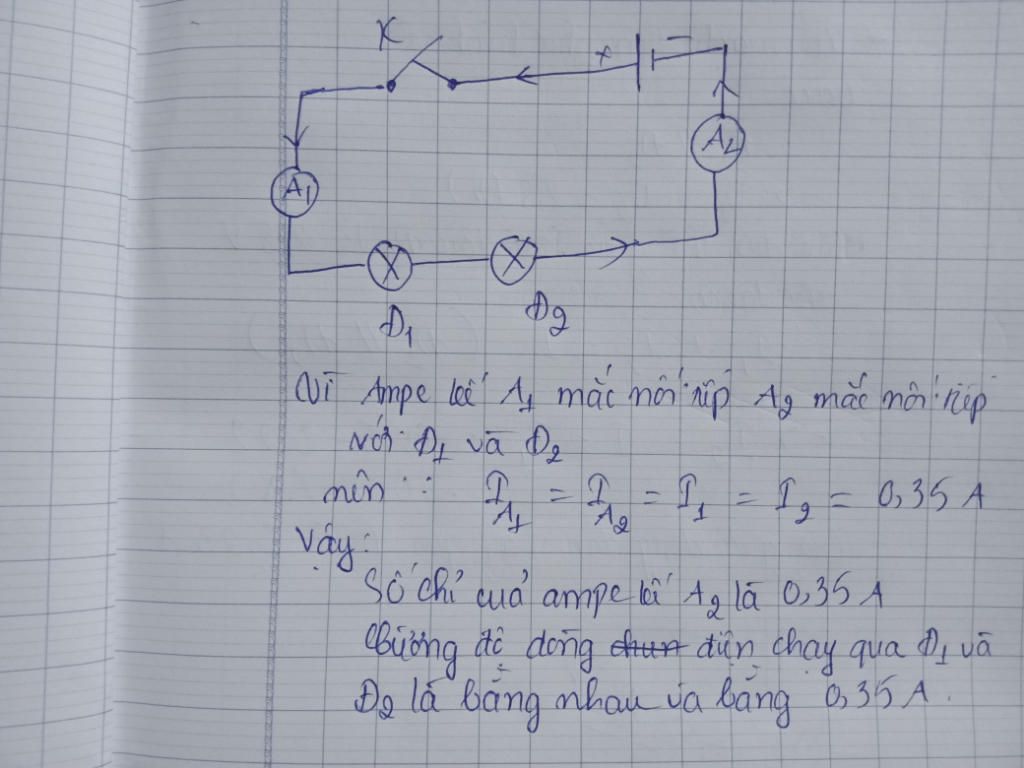 K
+ -
A1
A2
Đ1
Đ2
Vì Ampe kế A1 mắc nối tiếp A2 mắc nối tiếp
với Đ1 và Đ2
nên : I_A1 = I_A2 = I1 = I2 = 0,35 A
Vậy:
Số chỉ của ampe kế A2 là 0,35 A
Cường độ dòng chun điện chạy qua Đ1 và
Đ2 là bằng nhau và bằng 0,35 A.